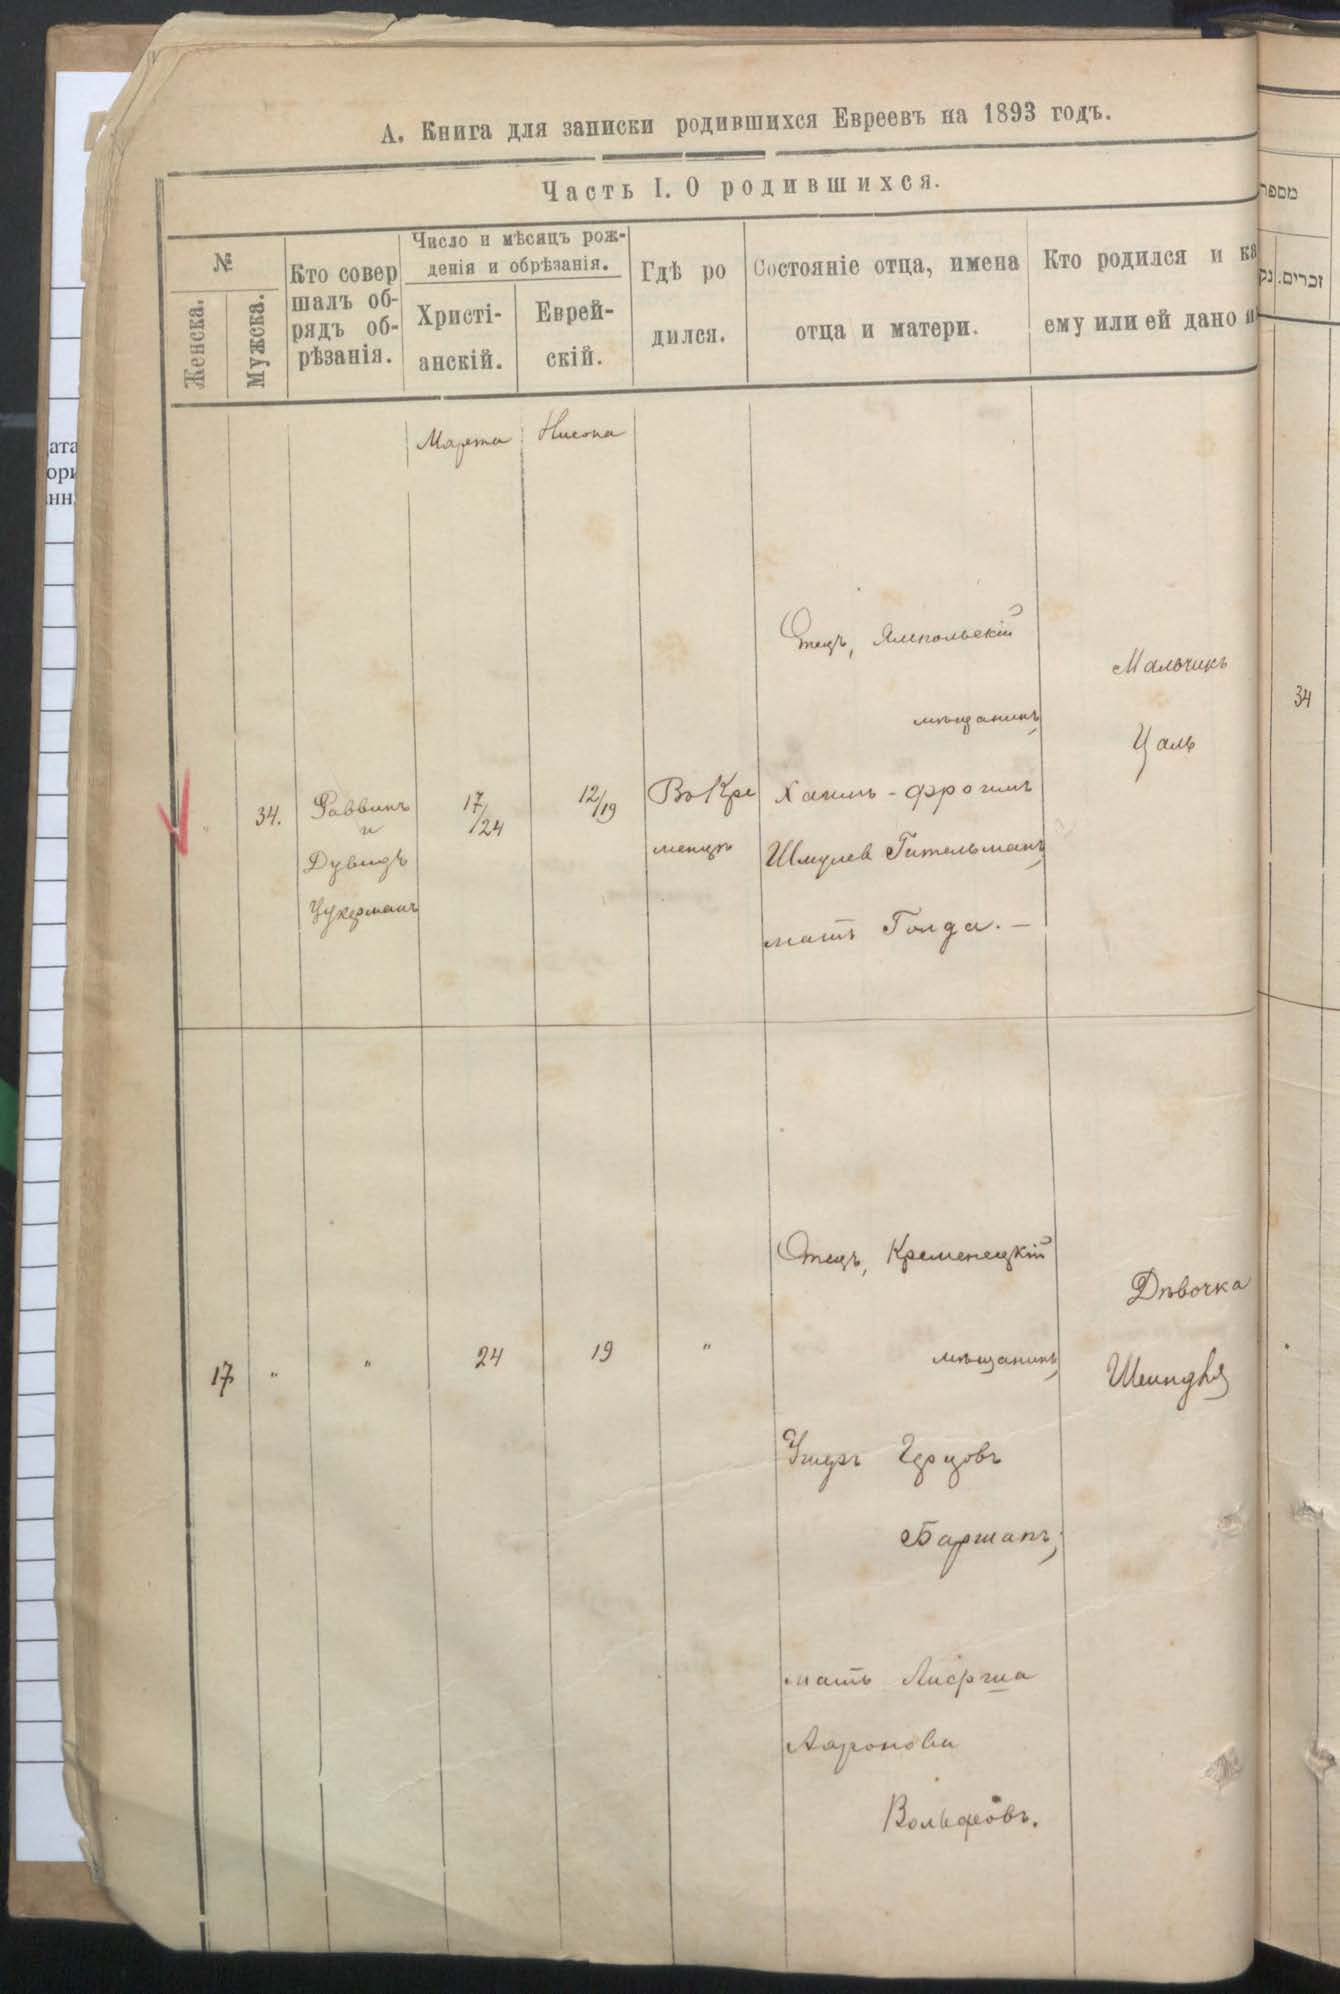 А. Книга для записки родившихся Евреевъ на 1893 годъ.
Часть I. О родившихся.
№
Женска.
Мужска.
Кто совер
шалъ об-
рядъ об-
рѣзанія.
Число и мѣсяцъ рож-
денія и обрѣзанія.
Христі-
анскій.
Еврей-
скій.
Гдѣ ро
дился.
Состояніе отца, имена
отца и матери.
Кто родился и ка
ему или ей дано и
Марта
Нисона
34.
Раввинъ
и
Дувидъ
Цукерманъ
17/24
12/19
Въ Кре
менцѣ
Отецъ, Ямпольскій
мѣщанинъ,
Хаимъ-Фроимъ
Шмулев Гительманъ,
мать Голда. —
Мальчикъ
Цаль
17
"
"
24
19
"
Отецъ, Кременецкій
мѣщанинъ,
Ушеръ Герцовъ
Баршапъ,
мать
Ааронова
Вольфовъ.
Дѣвочка
Шейндля
מספר
זכרים.
נק
34
ата
ори
нн